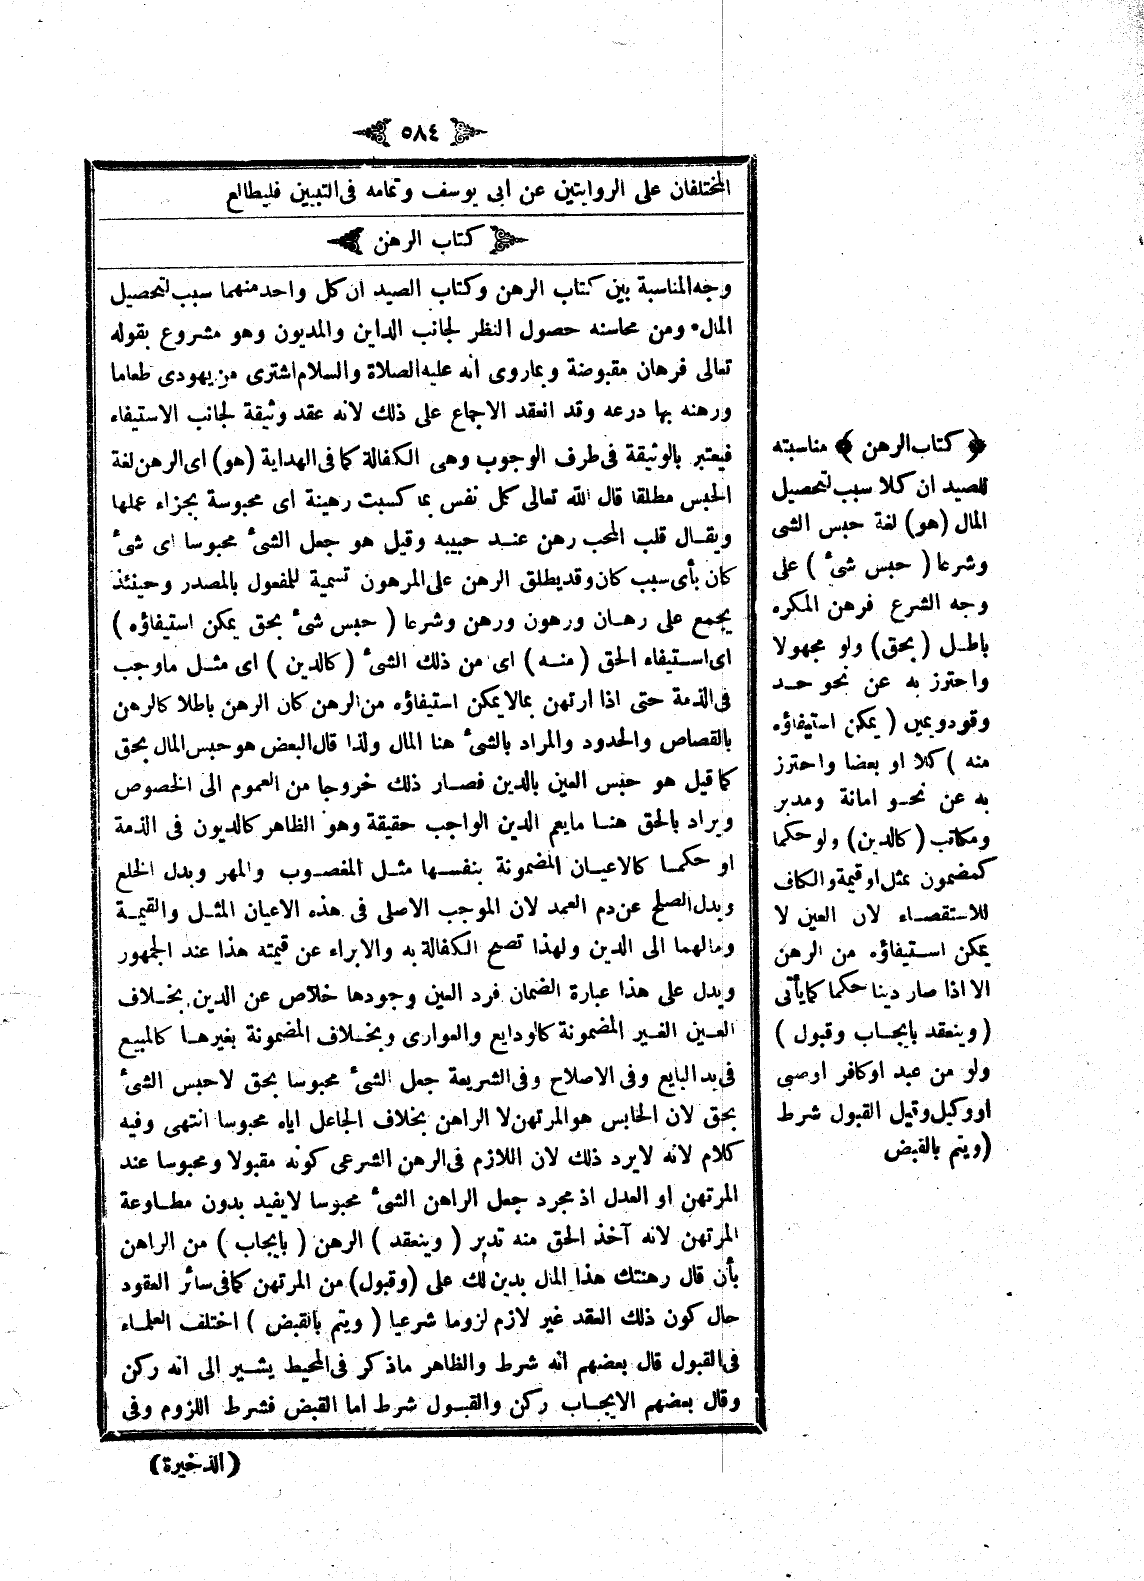 ٥٨٤
المختلفان على الروايتين عن ابى يوسف وتمامه فى التبيين فليطالع
كتاب الرهن
وجه المناسبة بين كتاب الرهن وكتاب الصيد ان كل واحد منهما سبب لتحصيل
المال • ومن محاسنه حصول النظر لجانب الداين والمديون وهو مشروع بقوله
تعالى فرهان مقبوضة وبماروى انه عليه الصلاة والسلام اشترى من يهودى طعاما
ورهنه بها درعه وقد انعقد الاجماع على ذلك لانه عقد وثيقة لجانب الاستيفاء
فيعتبر بالوثيقة فى طرف الوجوب وهى الكفالة كما فى الهداية (هو) اى الرهن لغة
الحبس مطلقا قال الله تعالى كل نفس بما كسبت رهينة اى محبوسة بجزاء عملها
ويقال قلب المحب رهن عند حبيبه وقيل هو جعل الشئ محبوسا اى شئ
كان بأى سبب كان وقد يطلق الرهن على المرهون تسمية للمفعول بالمصدر وحينئذ
يجمع على رهان ورهون ورهن وشرعا ( حبس شئ بحق يمكن استيفاؤه )
اى استيفاء الحق ( منه ) اى من ذلك الشئ ( كالدين ) اى مثل ماوجب
فى الذمة حتى اذا ارتهن بمالا يمكن استيفاؤه من الرهن كان الرهن باطلا كالرهن
بالقصاص والحدود والمراد بالشئ هنا المال ولذا قال البعض هو حبس المال بحق
كما قيل هو حبس العين بالدين فصار ذلك خروجا من العموم الى الخصوص
ويراد بالحق هنا مايعم الدين الواجب حقيقة وهو الظاهر كالديون فى الذمة
او حكما كالاعيان المضمونة بنفسها مثل المغصوب والمهر وبدل الخلع
وبدل الصلح عن دم العمد لان الموجب الاصلى فى هذه الاعيان المثل والقيمة
ومالهما الى الدين ولهذا تصح الكفالة به والابراء عن قيمته هذا عند الجمهور
ويدل على هذا عبارة الضمان فرد العين وجودها خلاص عن الدين بخلاف
العين الغير المضمونة كالودايع والعوارى وبخلاف المضمونة بغيرها كالمبيع
فى يد البايع وفى الاصلاح وفى الشريعة جعل الشئ محبوسا بحق لاحبس الشئ
بحق لان الحابس هو المرتهن لا الراهن بخلاف الجاعل اياه محبوسا انتهى وفيه
كلام لانه لايرد ذلك لان اللازم فى الرهن الشرعى كونه مقبولا ومحبوسا عند
المرتهن او العدل اذ مجرد جعل الراهن الشئ محبوسا لايفيد بدون مطاوعة
المرتهن لانه آخذ الحق منه تدبر ( وينعقد ) الرهن ( بايجاب ) من الراهن
بأن قال رهنتك هذا المال بدين لك على (وقبول) من المرتهن كمافى سائر العقود
حال كون ذلك العقد غير لازم لزوما شرعيا ( ويتم بالقبض ) اختلف العلماء
فى القبول قال بعضهم انه شرط والظاهر ماذكر فى المحيط يشير الى انه ركن
وقال بعضهم الايجاب ركن والقبول شرط اما القبض فشرط اللزوم وفى
(الذخيرة)
﴿ كتاب الرهن ﴾ مناسبته
للصيد ان كلا سبب لتحصيل
المال (هو) لغة حبس الشى
وشرعا ( حبس شئ ) على
وجه الشرع فرهن المكره
باطل (بحق) ولو مجهولا
واحترز به عن نحو حد
وقود ويمين ( يمكن استيفاؤه
منه ) كلا او بعضا واحترز
به عن نحو امانة ومدبر
ومكاتب (كالدين) ولو حكما
كمضمون بمثل او قيمة والكاف
للاستقصاء لان العين لا
يمكن استيفاؤه من الرهن
الا اذا صار دينا حكما كمايأتى
( وينعقد بايجاب وقبول )
ولو من عبد او كافر او صبى
او وكيل وقيل القبول شرط
(ويتم بالقبض